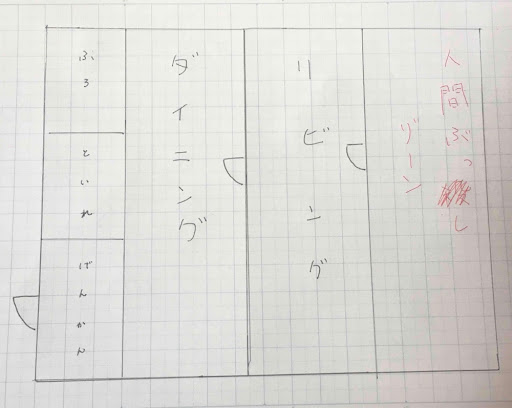 人間ぶっし
ゾーン
リビング
ダイニング
ふろ
といれ
げんかん